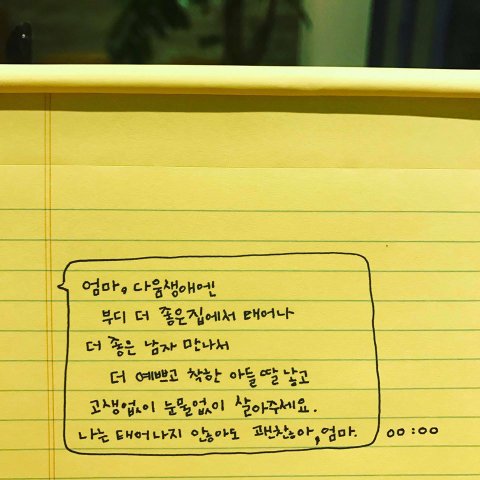 엄마, 다음생애엔
부디 더 좋은집에서 태어나
더 좋은 남자 만나서
더 예쁘고 착한 아들 딸 낳고
고생없이 눈물없이 살아주세요.
나는 태어나지 않아도 괜찮아, 엄마. 00:00